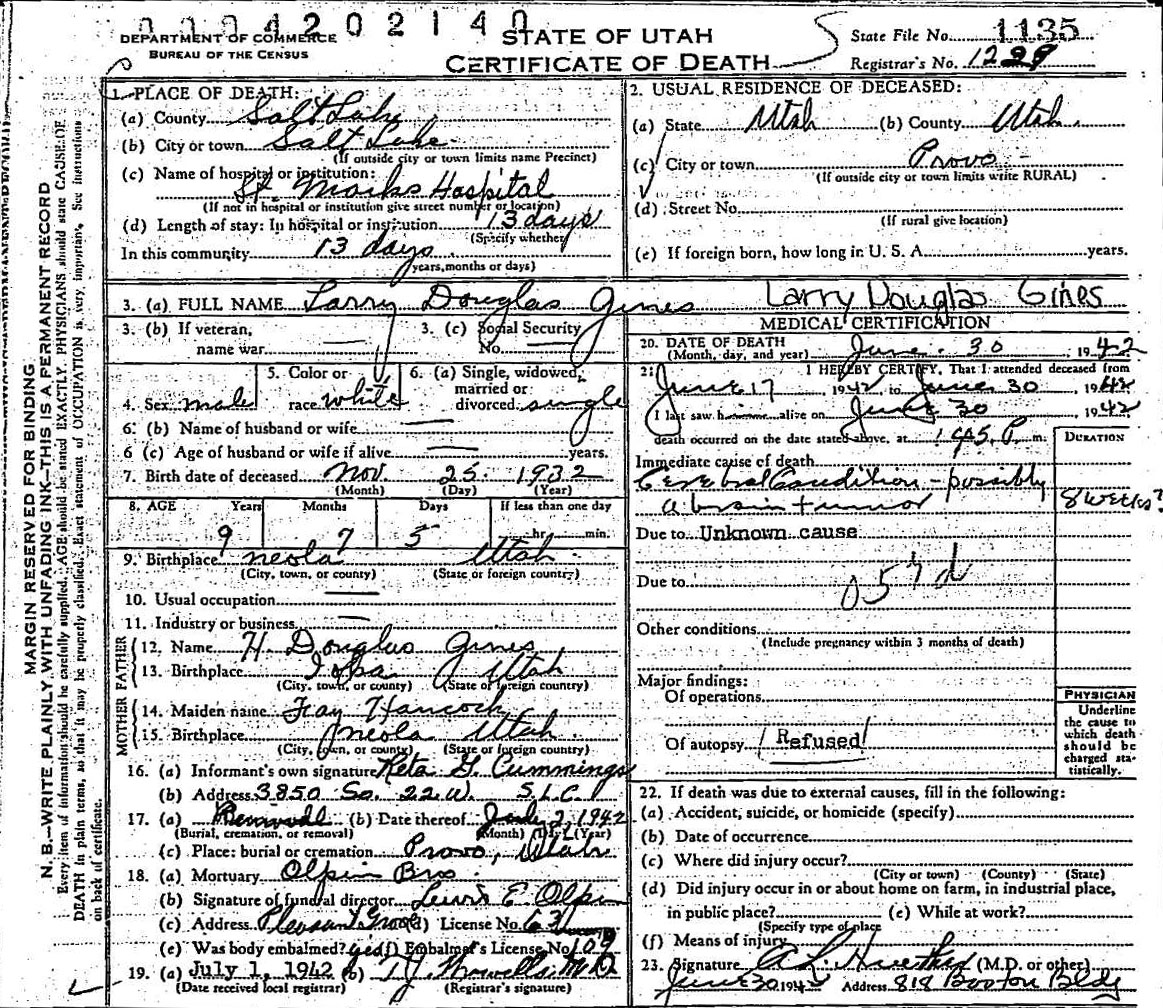 0004202140
DEPARTMENT OF COMMERCE
BUREAU OF THE CENSUS
STATE OF UTAH
CERTIFICATE OF DEATH
State File No. 1135
Registrar's No. 1229
MARGIN RESERVED FOR BINDING
N. B.—WRITE PLAINLY WITH UNFADING INK—THIS IS A PERMANENT RECORD
Every item of information should be carefully supplied. AGE should be stated EXACTLY. PHYSICIANS should state CAUSE OF
DEATH in plain terms, so that it may be properly classified. Exact statement of OCCUPATION is very important. See instructions
on back of certificate.
1. PLACE OF DEATH:
(a) County Salt Lake
(b) City or town Salt Lake
(If outside city or town limits name Precinct)
(c) Name of hospital or institution:
St. Marks Hospital
(If not in hospital or institution give street number or location)
(d) Length of stay: In hospital or institution 13 days
(Specify whether
In this community 13 days
years, months or days)
2. USUAL RESIDENCE OF DECEASED:
(a) State Utah (b) County Utah
(c) City or town Provo
(If outside city or town limits write RURAL)
(d) Street No.
(If rural give location)
(e) If foreign born, how long in U. S. A. years.
3. (a) FULL NAME Larry Douglas Gines Larry Douglas Gines
3. (b) If veteran,
name war
3. (c) Social Security
No.
4. Sex male
5. Color or
race white
6. (a) Single, widowed,
married or
divorced single
6. (b) Name of husband or wife
6 (c) Age of husband or wife if alive years.
7. Birth date of deceased Nov. 25 1932
(Month) (Day) (Year)
8. AGE Years Months Days If less than one day
9 7 5 hr. min.
9. Birthplace Neola Utah
(City, town, or county) (State or foreign country)
10. Usual occupation
11. Industry or business
FATHER
12. Name H. Douglas Gines
13. Birthplace Utah
(City, town, or county) (State of foreign country)
MOTHER
14. Maiden name Fay Hancock
15. Birthplace Neola Utah
(City, town, or county) (State or foreign country)
16. (a) Informant's own signature Reta G. Cummings
(b) Address 3850 So. 22 W. S.L.C.
17. (a) Removal (b) Date thereof July 2, 1942
(Burial, cremation, or removal) (Month) (Day) (Year)
(c) Place: burial or cremation Provo, Utah
18. (a) Mortuary Olpin Bros.
(b) Signature of funeral director Lewis E. Olpin
(c) Address Pleasant Grove (d) License No. 63
(e) Was body embalmed? yes (f) Embalmer's License No. 109
19. (a) July 1, 1942 (b) M.D.
(Date received local registrar) (Registrar's signature)
MEDICAL CERTIFICATION
20. DATE OF DEATH
(Month, day, and year) June 30 1942
21. I HEREBY CERTIFY, That I attended deceased from
June 17, 1942, to June 30 1942
I last saw h alive on June 30, 1942
death occurred on the date stated above, at 1:45 P. m.
DURATION
Immediate cause of death
Cerebral Condition - possibly
a brain tumor 8 weeks?
Due to Unknown cause
Due to
Other conditions
(Include pregnancy within 3 months of death)
Major findings:
Of operations
Of autopsy Refused
PHYSICIAN
Underline
the cause to
which death
should be
charged sta-
tistically.
22. If death was due to external causes, fill in the following:
(a) Accident, suicide, or homicide (specify)
(b) Date of occurrence
(c) Where did injury occur?
(City or town) (County) (State)
(d) Did injury occur in or about home on farm, in industrial place,
in public place? (e) While at work?
(Specify type of place
(f) Means of injury
23. Signature (M.D. or other)
June 30 1942 Address 818 Boston Bldg